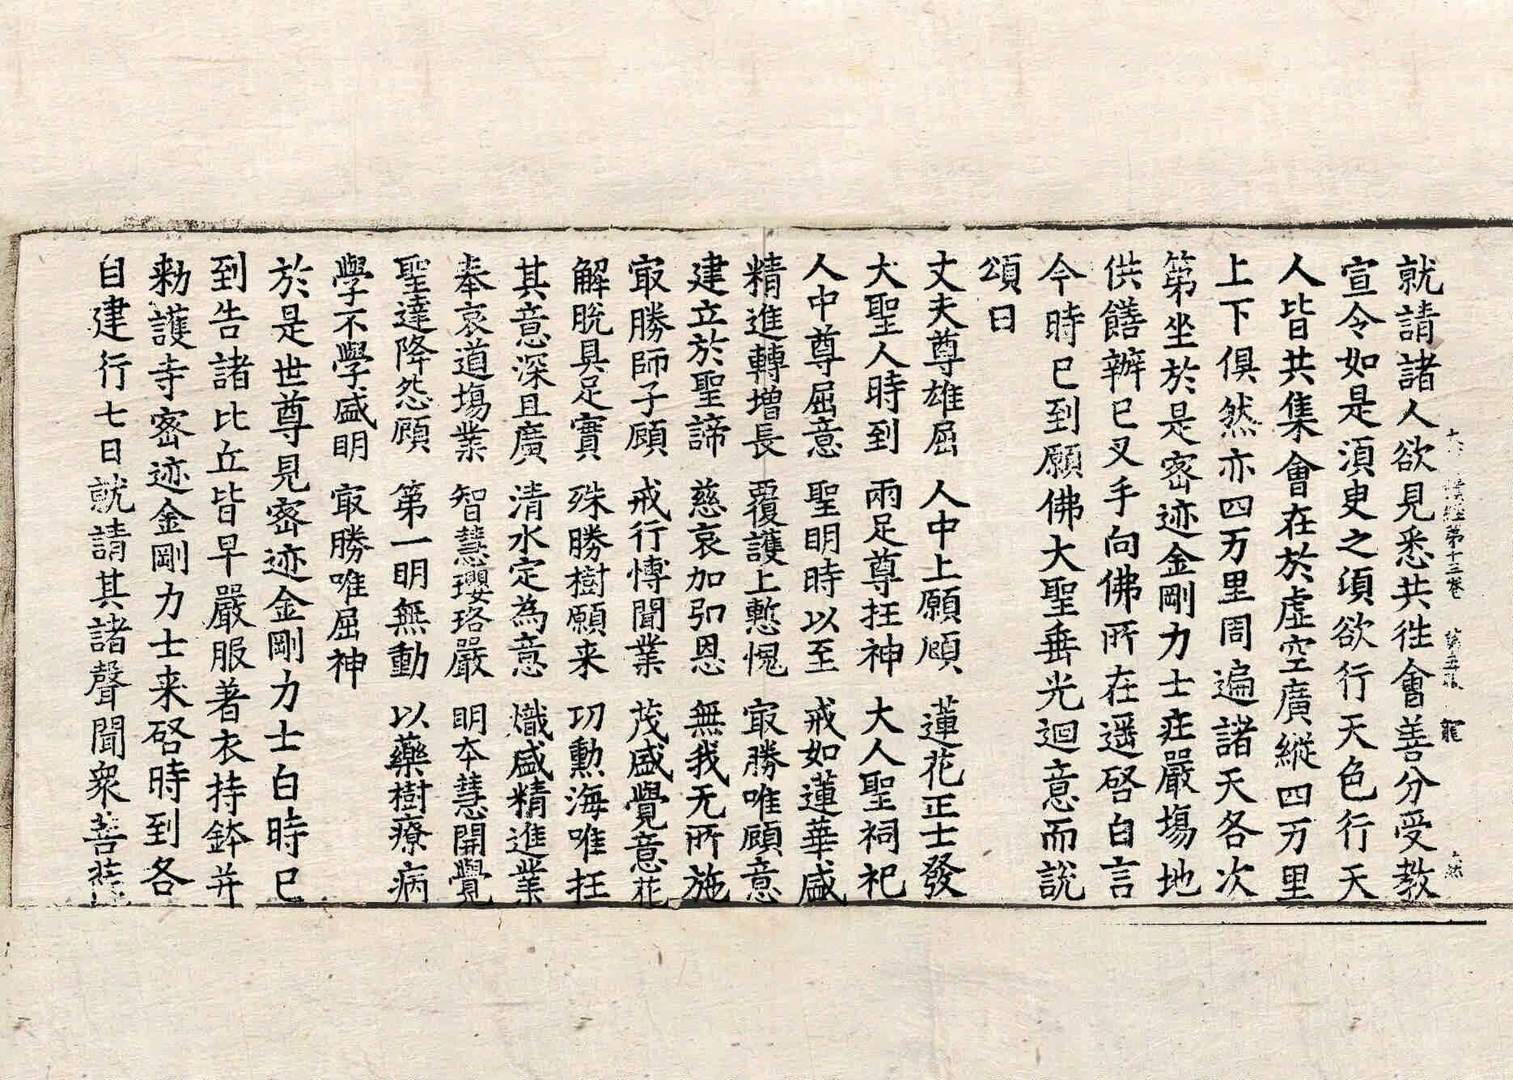 經第十三卷 第五張 龍
就請諸人欲見悉共往會善分受教
宣令如是湏臾之頃欲行天色行天
人皆共集會在於虛空廣縱四万里
上下俱然亦四万里周遍諸天各次
第坐於是密迹金剛力士庄嚴場地
供饍辦已叉手向佛所在遥啓白言
今時已到願佛大聖垂光迴意而說
頌曰
丈夫尊雄屈 人中上願願 蓮花正士發
大聖人時到 兩足尊抂神 大人聖祠祀
人中尊屈意 聖明時以至 戒如蓮華盛
精進轉增長 覆護上慙愧 寂勝唯顧意
建立於聖諦 慈哀加弘恩 無我无所施
寂勝師子顧 戒行愽聞業 茂盛覺意花
解脫具足實 殊勝樹願来 功勲海唯抂
其意深且廣 清水定為意 熾盛精進業
奉哀道場業 智慧瓔珞嚴 明本慧開覺
聖達降怨顧 第一明無動 以藥樹療病
學不學盛明 寂勝唯屈神
於是世尊見密迹金剛力士白時已
到告諸比丘皆早嚴服著衣持鉢并
勑護寺密迹金剛力士来啓時到各
自建行七日就請其諸聲聞衆菩薩